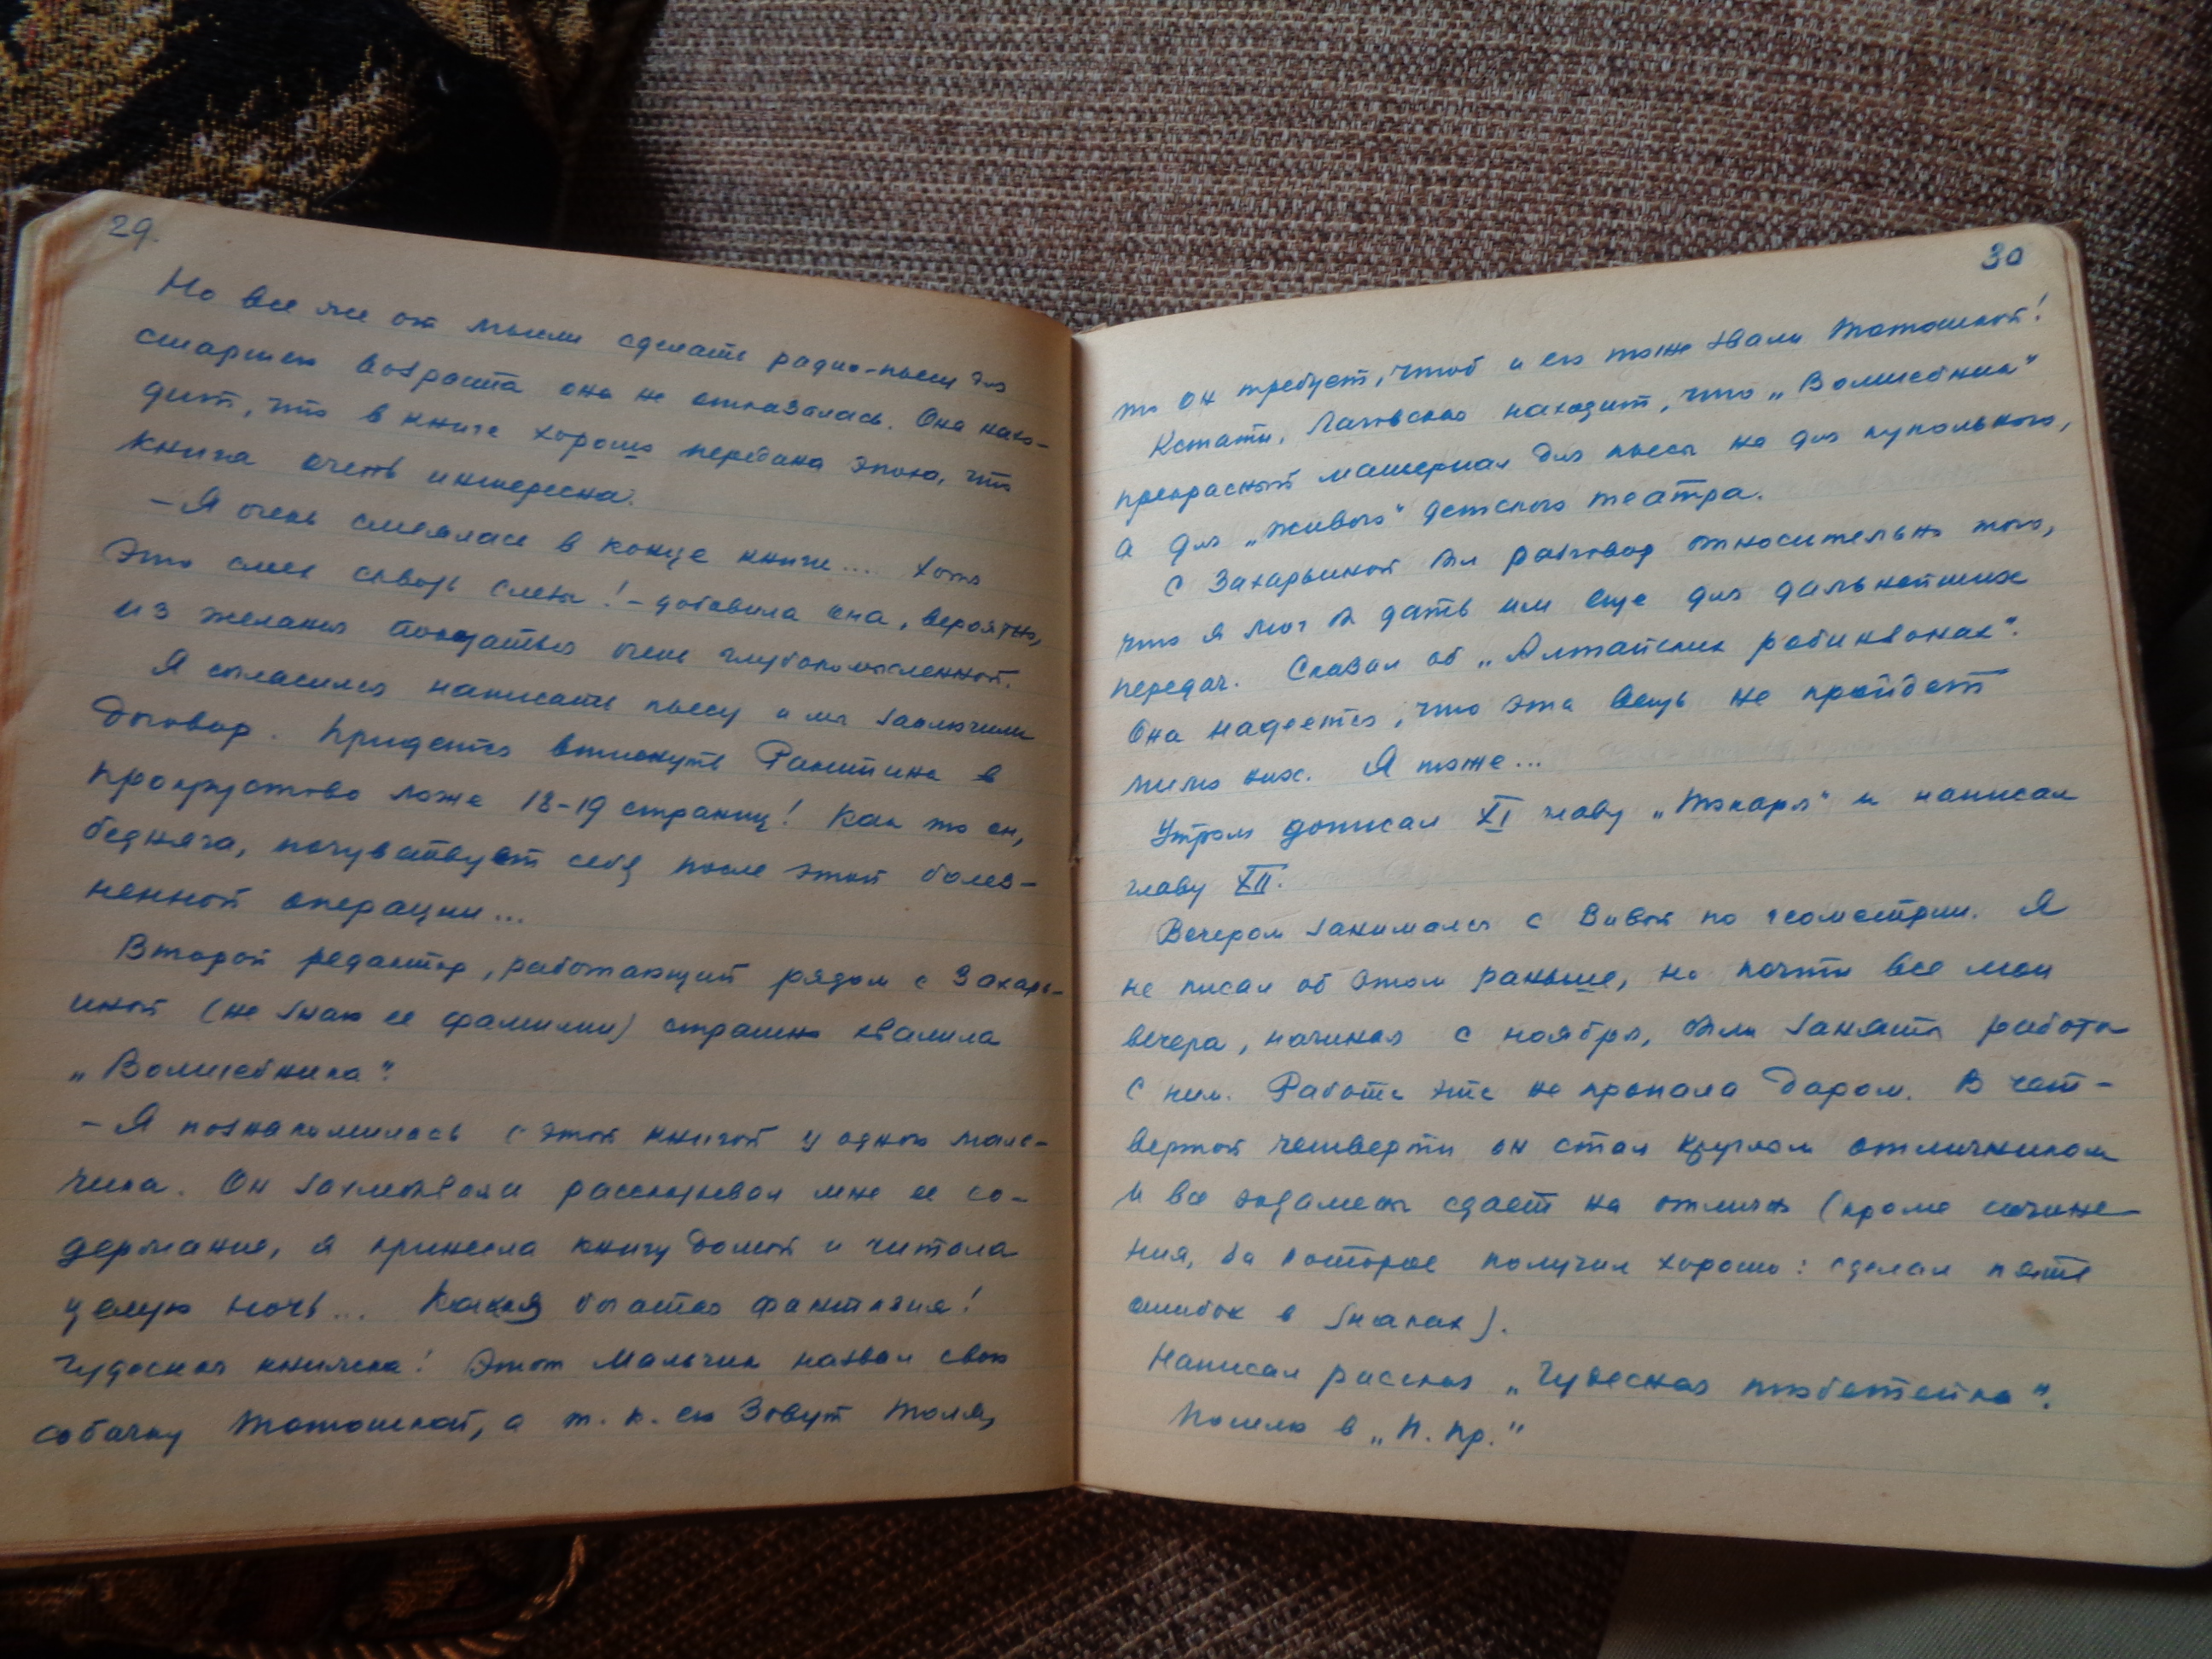 29.
Но все же от мысли сделать радио-пьесу для
старшего возраста она не отказалась. Она нахо-
дит, что в книге хорошо передана эпоха, что
книга очень интересна.
- Я очень смеялась в конце книги.... Хотя
это смех сквозь слезы! - добавила она, вероятно,
из желания показаться очень глубокомысленной.
Я согласился написать пьесу и мы заключили
договор. Придется втиснуть Ракитина в
прокрустово ложе 18-19 страниц! Как то он,
бедняга, почувствует себя после этой болез-
ненной операции...
Второй редактор, работающий рядом с Захарь-
иной (не знаю ее фамилии) страшно хвалила
„Волшебника".
- Я познакомилась с этой книгой у одного маль-
чика. Он захлебываясь рассказывал мне ее со-
держание, я принесла книгу домой и читала
целую ночь... Какая богатая фантазия!
Чудесная книжка! Этот мальчик назвал свою
собачку Тотошкой, а т. к. его зовут Толя,
30
то он требует, чтоб и его тоже звали Тотошкой!
Кстати, находит, что „Волшебник"
прекрасный материал для пьесы не для кукольного,
а для „живого" детского театра.
С Захарьиной был разговор относительно того,
что я мог бы дать им еще для дальнейших
передач. Сказал об „Алтайских робинзонах".
Она надеется, что эта вещь не пройдет
мимо них. Я тоже...
Утром дописал XI главу „Токаря" и написал
главу XII.
Вечером занимался с Вивой по геометрии. Я
не писал об этом раньше, но почти все мои
вечера, начиная с ноября, были заняты работой
с ним. Работа эта не пропала даром. В чет-
вертой четверти он стал круглым отличником
и все экзамены сдает на отлично (кроме сочине-
ния, за которое получил хорошо: сделал пять
ошибок в знаках).
Написал рассказ „Чудесная тюбетейка".
Пошлю в „П. пр."